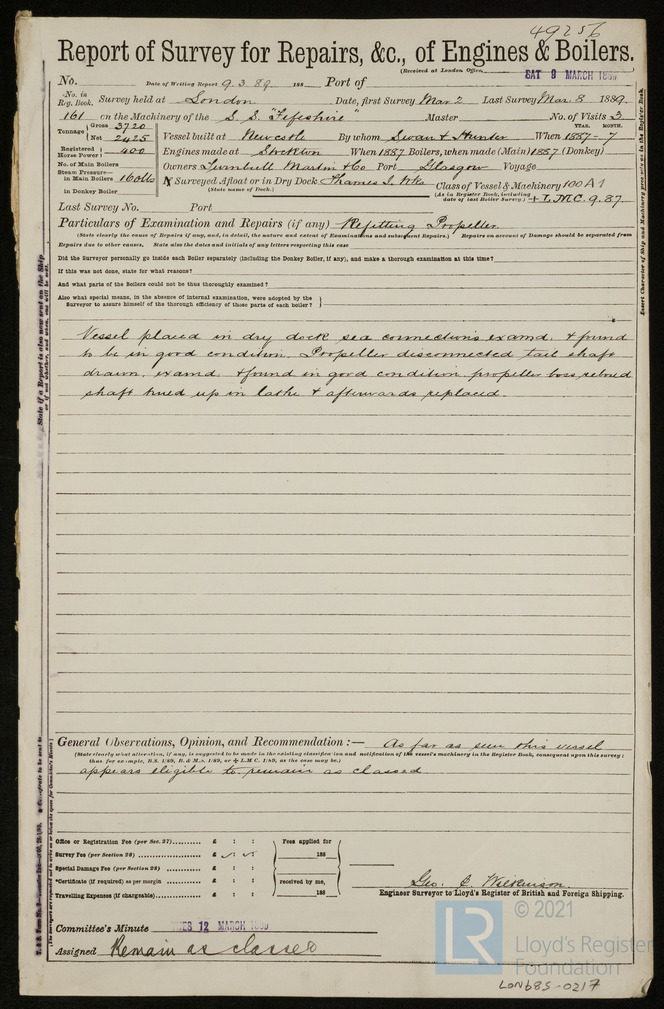 49256
Report of Survey for Repairs, &c., of Engines & Boilers.
(Received at London Office, SAT 9 MARCH 1889
No. Date of Writing Report 9.3.89 188 Port of
No. in Reg. Book. Survey held at London Date, first Survey Mar 2 Last Survey Mar. 8 1889.
161 on the Machinery of the S. S. "Fifeshire" Master No. of Visits 3
Tonnage Gross 3720
Net 2425 Vessel built at Newcastle By whom Swan & Hunter When 1887-7
YEAR. MONTH.
Registered Horse Power 400 Engines made at Stockton When 1887 Boilers, when made (Main) 1887 (Donkey)
No. of Main Boilers Owners Turnbull Martin & Co Port Glasgow Voyage
Steam Pressure— in Main Boilers 160 lbs Surveyed Afloat or in Dry Dock Thames I. Wks Class of Vessel & Machinery 100 A1
in Donkey Boiler (State name of Dock.) (As in Register Book, including date of last Boiler Survey.) + L.M.C. 9.87.
Last Survey No. Port
Particulars of Examination and Repairs (if any) Refitting Propeller
(State clearly the cause of Repairs if any, and, in detail, the nature and extent of Examinations and subsequent Repairs.) Repairs on account of Damage should be separated from
Repairs due to other causes. State also the dates and initials of any letters respecting this case
Did the Surveyor personally go inside each Boiler separately (including the Donkey Boiler, if any), and make a thorough examination at this time?
If this was not done, state for what reasons?
And what parts of the Boilers could not be thus thoroughly examined?
Also what special means, in the absence of internal examination, were adopted by the
Surveyor to assure himself of the thorough efficiency of those parts of each boiler?
Vessel placed in dry dock sea connections examd. & found
to be in good condition. Propeller disconnected tail shaft
drawn, examd. & found in good condition propeller boss rebored
shaft trued up in lathe & afterwards replaced.
General Observations, Opinion, and Recommendation :— As far as seen this vessel
(State clearly what alteration, if any, is suggested to be made in the existing classification and notification of the vessel's machinery in the Register Book, consequent upon this survey:
thus for example, B.S. 1/89, B. & M.S. 1/89, or + L.M.C. 1/89, as the case may be.)
appears eligible to remain as classed
Office or Registration Fee (per Sec. 27) £ : : Fees applied for
Survey Fee (per Section 28) £ : : 188
Special Damage Fee (per Section 28) £ : :
*Certificate (if required) as per margin £ : : received by me,
Travelling Expenses (if chargeable) £ : : 188
Geo. C. Wilkinson.
Engineer Surveyor to Lloyd's Register of British and Foreign Shipping.
Committee's Minute TUES 12 MARCH 1889
Assigned Remain as classed
© 2021
LR
Lloyd's Register
Foundation
LON685-0217